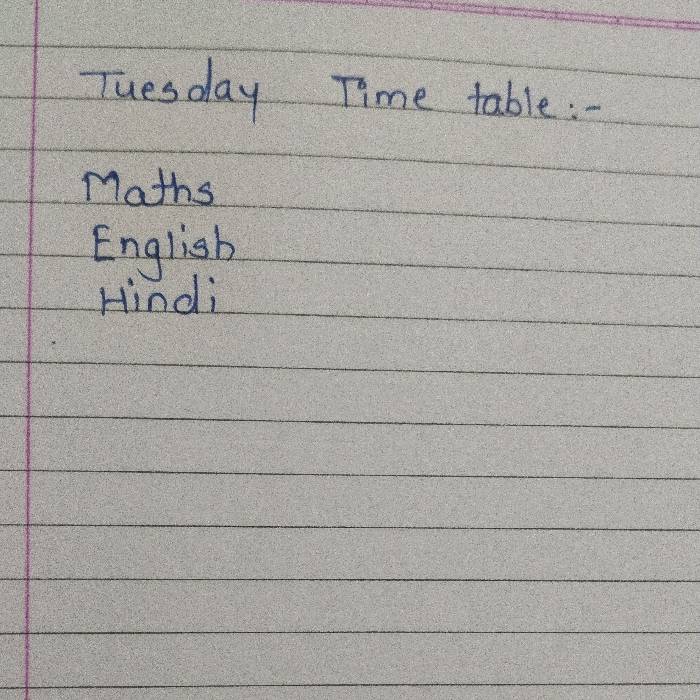 Tuesday Time table :-
Maths
English
Hindi